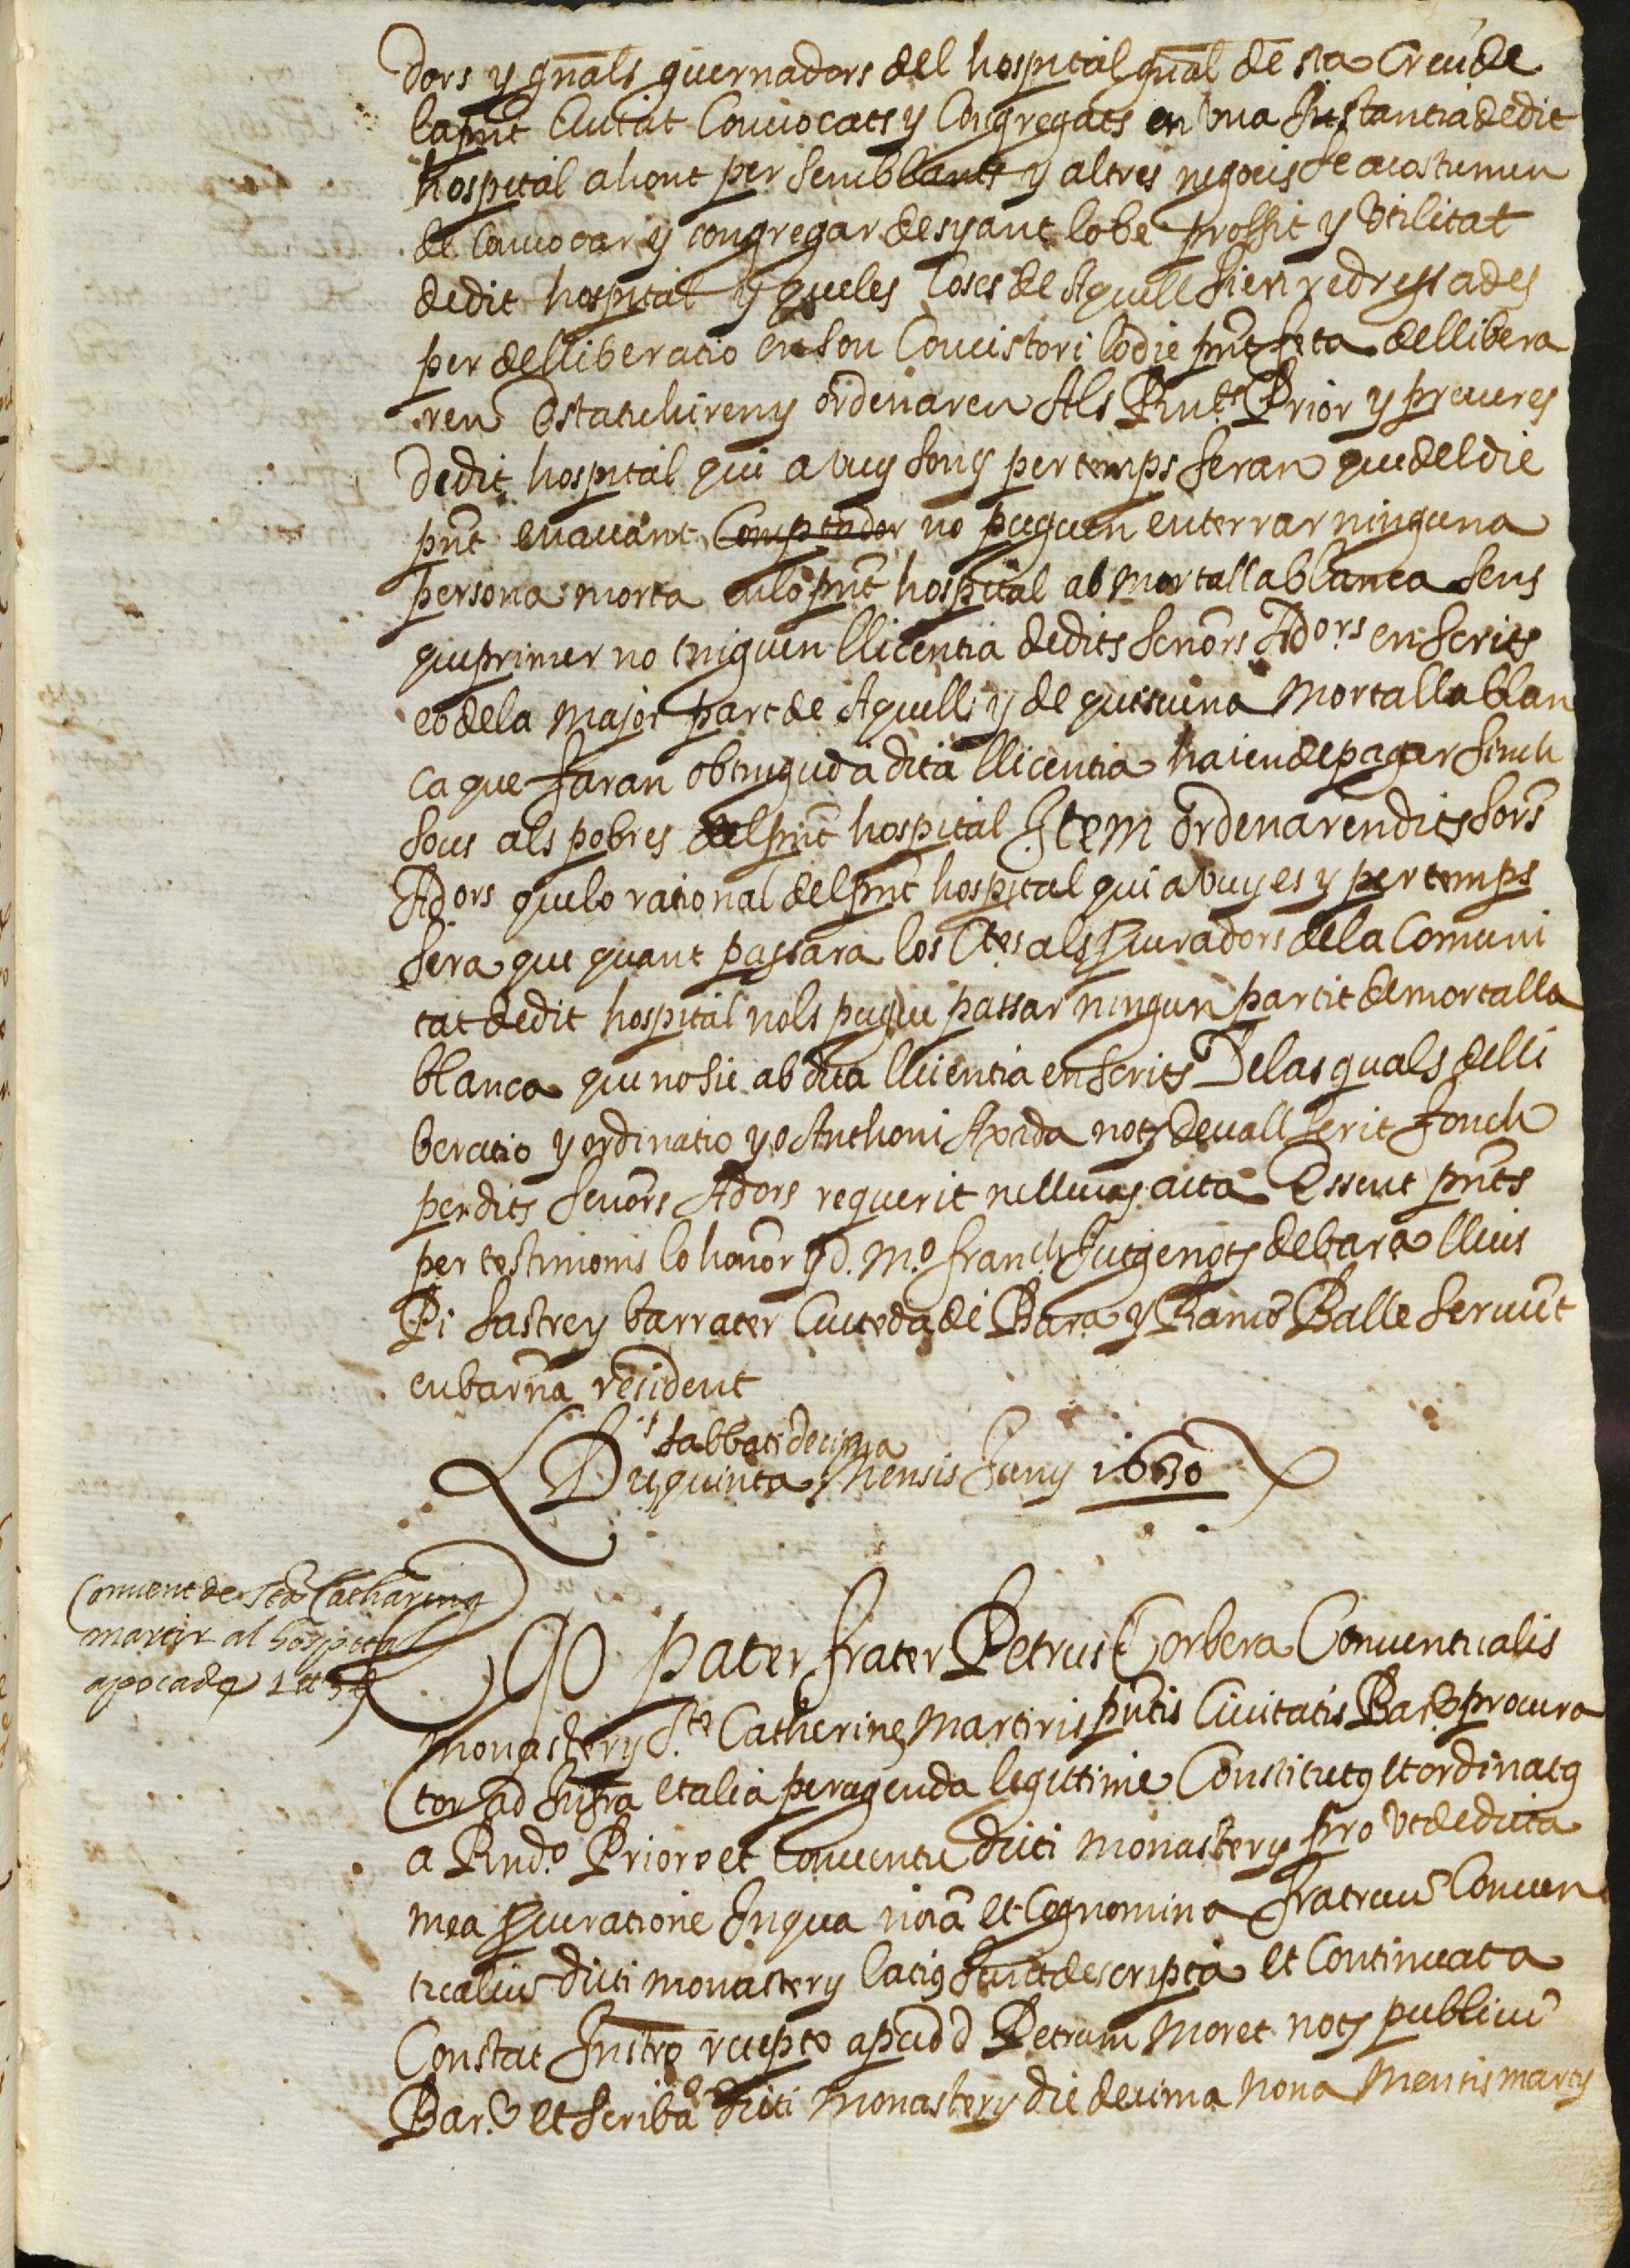 dors y gñals guernadors del hospital gñal de sta Creu de
la pñt Ciutat Convocats y Congregats en una Instantia de dit
hospital ahont per semblants y altres negocis se acostumen
de Convocar y congregar desijant lo be proffit y utilitat
de dit hospital y que les Coses de Aquell sien redressades
per delliberatio en son Concistori lo die pñt feta dellibera
ren Estatuhiren y ordenaren Als Rnts Prior y preveres
de dit hospital qui a vuy son y per temps seran que del die
pñt enavant no puguen enterrar ninguna
persona morta en lo pñt hospital ab mortalla blanca sens
que primer no tinguen llicentia de dits señors Adors en scrits
eo de la major part de Aquells y de quiscuna Mortalla blan
ca que faran obtinguda dita llicentia haien de pagar sinch
sous als pobres del pñt hospital Item ordenaren dits sors
Adors que lo rational del pñt hospital qui a vuy es y per temps
sera que quant passara los Ctes als procuradors de la Comuni
tat de dit hospital nols pugue passar ningun partit de mortalla
blanca que no sie ab dita llicentia en scrits De las quals delli
beratio y ordinatio yo Anthoni Axada not devall scrit fonch
per dits señors Adors requerit ne llevas acta Essent pñts
per testimonis lo honor y d. Mo franch Jutge not de bara lluis
Pi sastre y barrater Ciuteda de Bara y Ramo Balle servint
en barna resident
Die sabbati decima
quinta Mensis Juny 1630
Convent de Sta Catharina
martir al hospital
apoca de 1 ll 5 s
EGO Pater frater Petrus Corbera Conventualis
Monastery Ste Catherine Martiris pñtis Civitatis Bar procura
tor ad Infra et alia peragenda legittime Constitutus et ordinatus
a Rndo Priore et Conventu dicti monastery pro ut de dicta
mea procuratione In qua noia et Cognomina fratrum Conven
tualium dicti monastery latius sunt descripta et Continuata
Constat Instro recepto apud d Petrum Moret not publicum
Bar et scriba dicti Monastery die decima nona Mensis marty